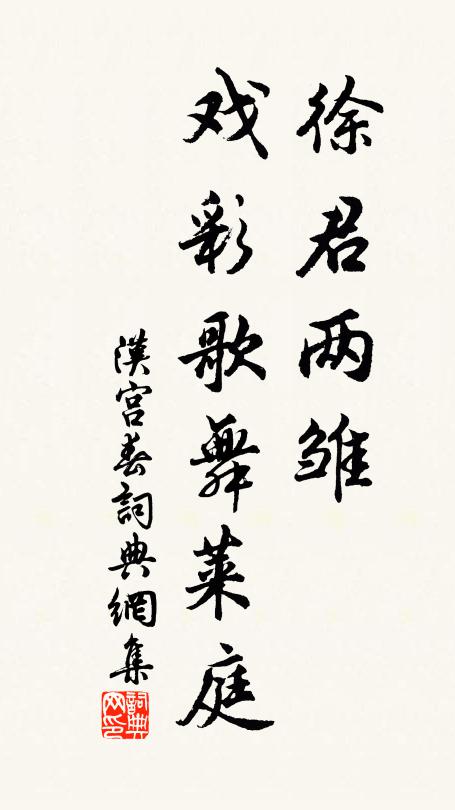 徐君两雏
戏彩歌舞莱庭
漢宫春詞典網集
詞典网印